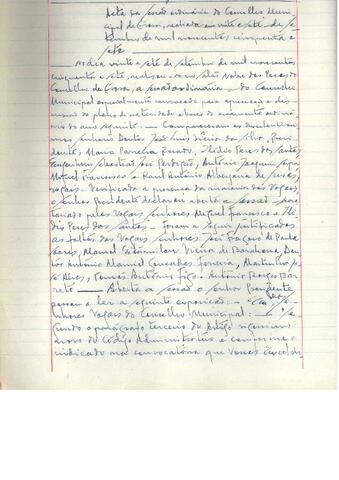 Acta da sessão ordinária do Conselho Munici
pal de Évora, realizada em vinte e sete de se
tembro de mil novecentos cinquenta e
sete
No dia vinte e sete de setembro de mil novecentos
cinquenta e sete, realizou-se no Salão Nobre dos Paços do
Concelho de Évora, a sessão ordinária do Conselho
Municipal especialmente convocado para apreciação e dis
cussão do plano de actividade e bases do orçamento ordiná
rio do ano seguinte. Compareceram os excelentíssi
mos senhores Doutor José Luís da Silva, Presi
dente, Mário Ferreira, Ilídio Peres dos Santos
António Joaquim
Miguel Francisco e Raul António
vogais. Verificada a presença da maioria dos Vogais,
o senhor Presidente declarou aberta a sessão
pelos Vogais senhores, Miguel Francisco e Ilí
dio Peres dos Santos. Foram a seguir justificadas
as faltas dos Vogais senhores de Paula
Soares, Manuel de Barahona, Dou
tor António Manuel Gonçalves Ferreira, Martinho
António e António Borges Bar
reto. Aberta a sessão o senhor Presidente
passou a ler a seguinte exposição: Se
nhores Vogais do Conselho Municipal: Se
gundo o parágrafo terceiro do artigo
novo do Código Administrativo e conforme o
indicado na convocatória que Vossas Excelên